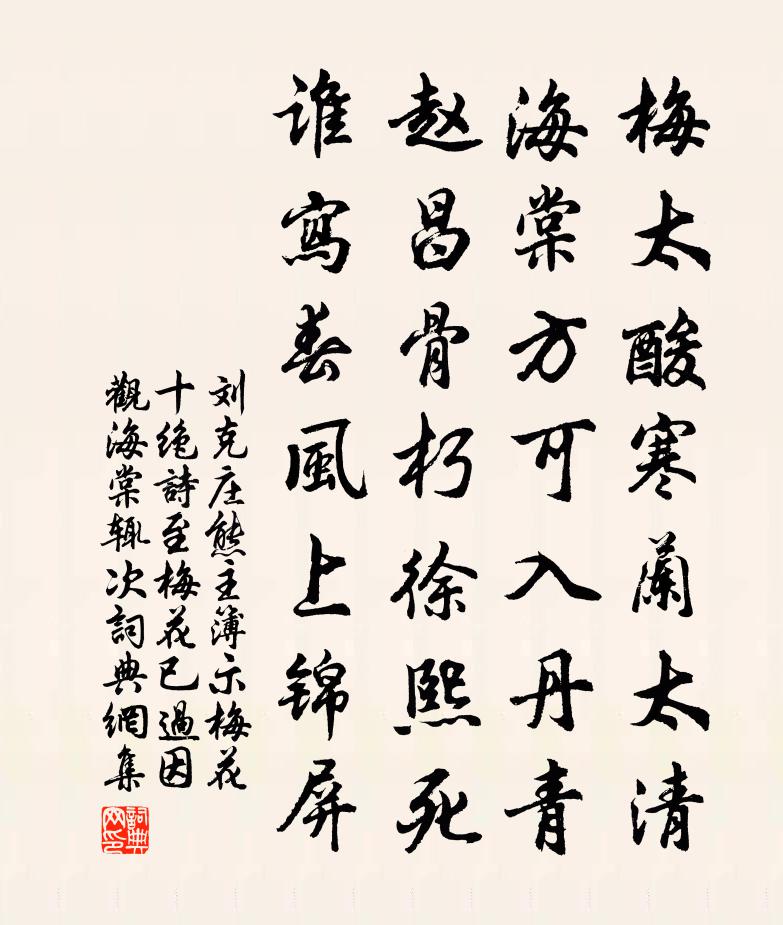 梅太酸寒蘭太清
海棠方可入丹青
赵昌骨朽徐熙死
谁寫春風上锦屏
刘克庄熊主簿示梅花
十绝詩至梅花已過因
觀海棠辄次詞典網集
詞典
网印